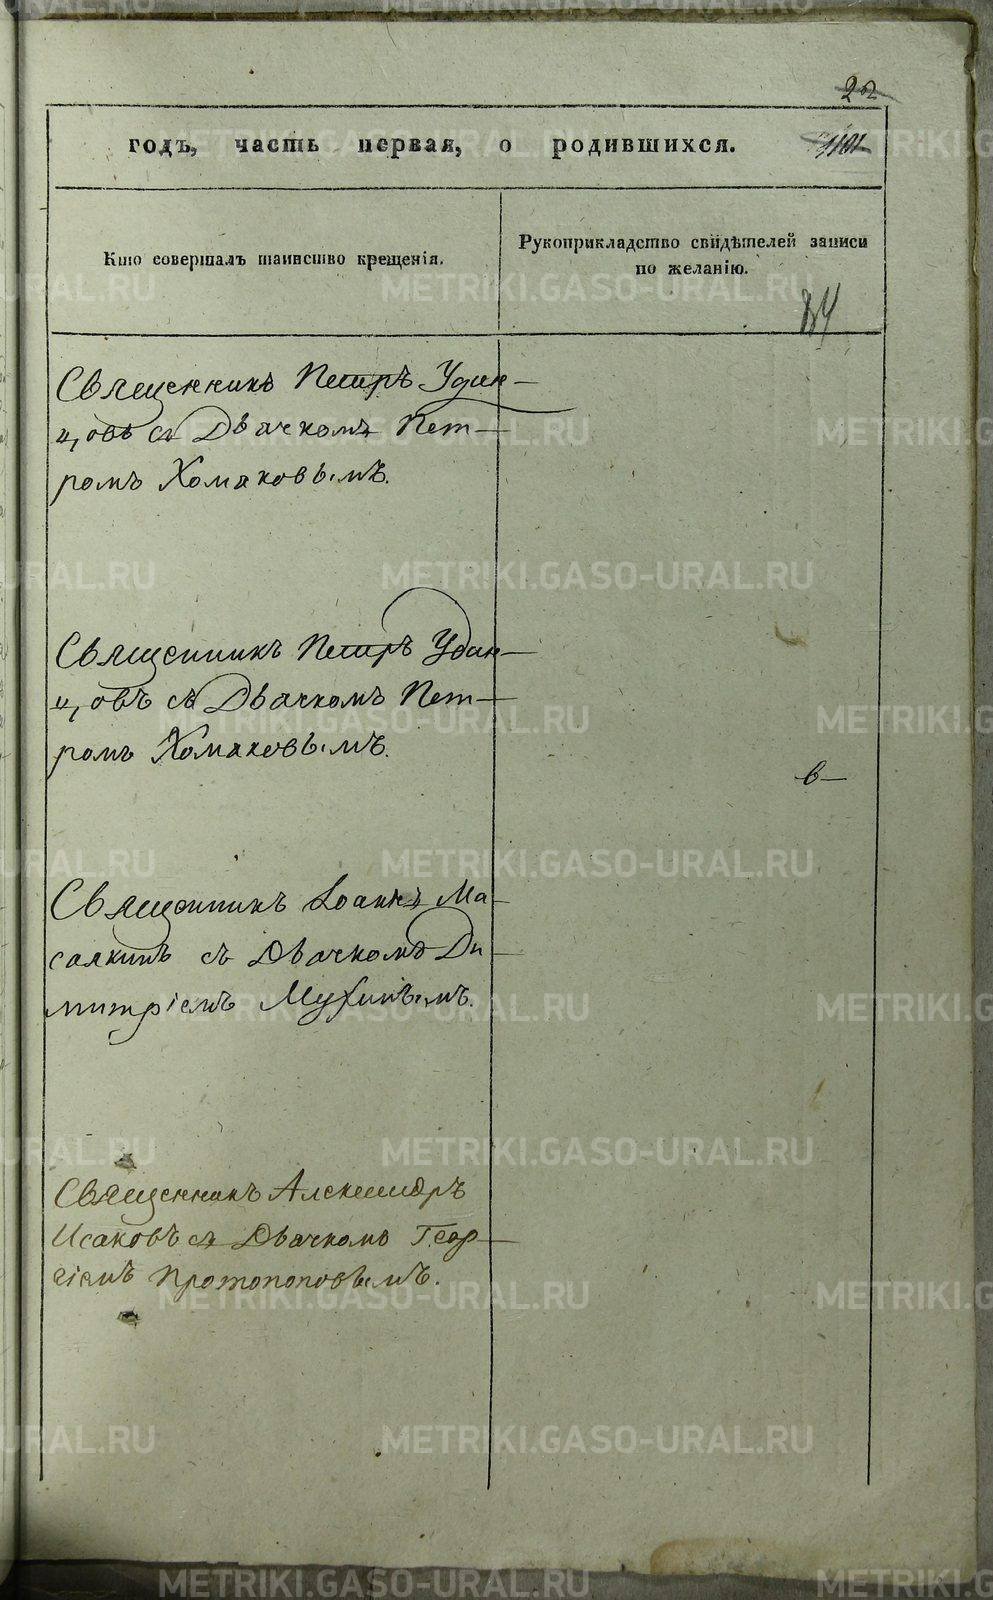 22
годъ, часть первая, о родившихся.
Кто совершалъ таинство крещенія.
Рукоприкладство свидѣтелей записи
по желанію.
Священникъ Петръ Удин-
цовъ съ Дьячкомъ Пет-
ромъ Хомяковымъ.
Священникъ Петръ Удин-
цовъ съ Дьячкомъ Пет-
ромъ Хомяковымъ.
в-
Священникъ Іоаннъ Ма-
салкинъ съ Дьячкомъ Ди-
митріемъ Мухинымъ.
Священникъ Александръ
Исаковъ съ Дьячкомъ Геор-
гіемъ Протопоповымъ.
METRIKI.GASO-URAL.RU